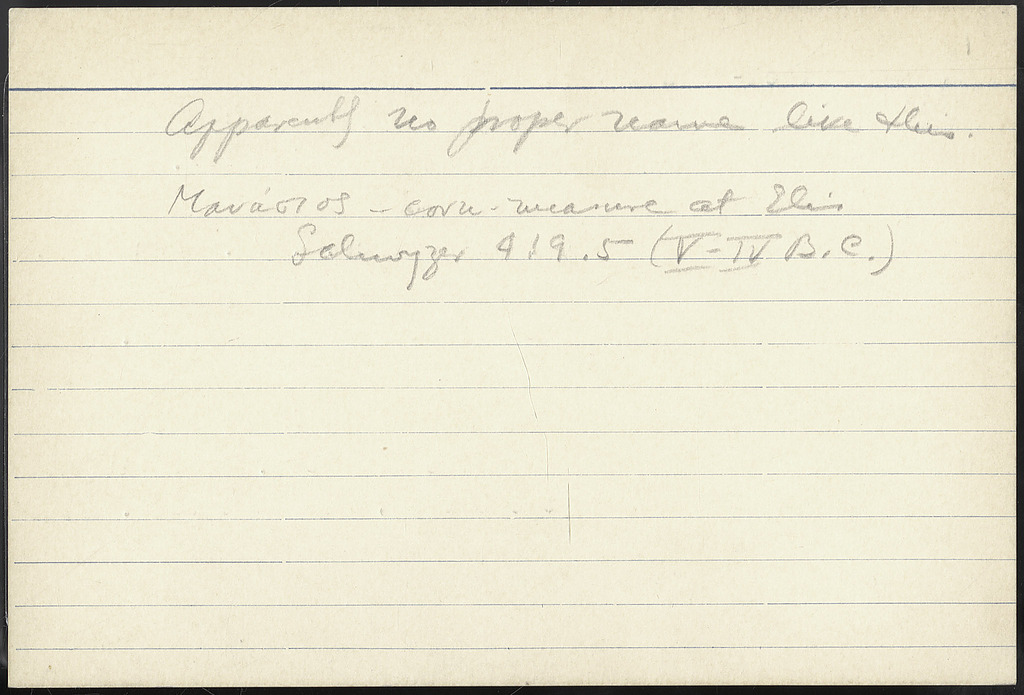 Apparently no proper name like this.
Μανάσιος – corn-measure at Elis
Schwyzer 419.5 (V-IV B.C.)